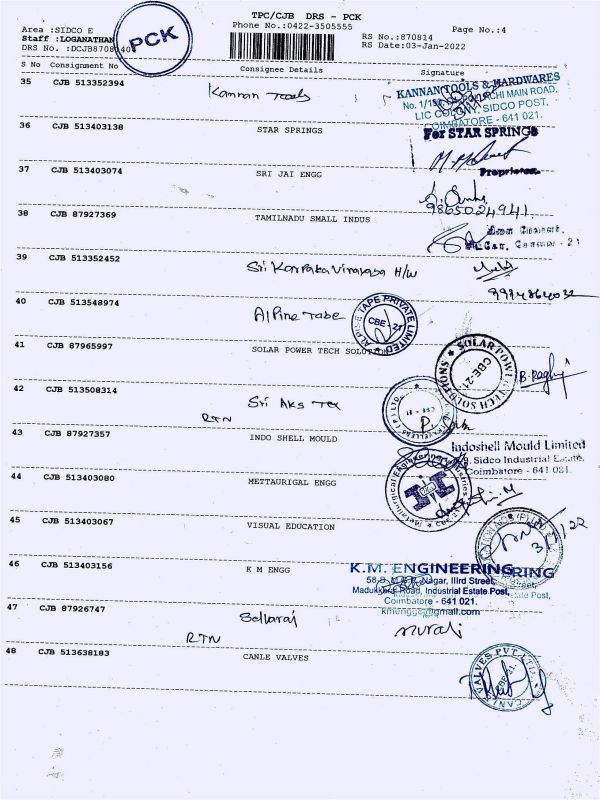 TPC/CJB DRS - PCK
Area :SIDCO E
Phone No.:0422-3505555
Page No.:4
Staff :LOGANATHAN
RS No.:870814
DRS No. :DCJB8708
RS Date:03-Jan-2022
PCK
S No Consignment No Consignee Details Signature
35 CJB 513352394 Kannan Tools
KANNAN TOOLS & HARDWARES
MAIN ROAD,
LIC COLONY, SIDCO POST,
COIMBATORE - 641 021.
36 CJB 513403138 STAR SPRINGS
For STAR SPRINGS
Proprietor.
37 CJB 513403074 SRI JAI ENGG
9865024941
38 CJB 87927369 TAMILNADU SMALL INDUS
39 CJB 513352452 Sri Karpaka Vinayaga H/W
40 CJB 513548974 Alpine Tape
ALPINE TAPE PRIVATE LIMITED
CBE - 21
41 CJB 87965997 SOLAR POWER TECH SOLUTION
SOLAR POWER TECH SOLUTIONS
CBE-21
42 CJB 513508314 Sri Aks Tex
RTN
43 CJB 87927357 INDO SHELL MOULD
Indoshell Mould Limited
Sidco Industrial Estate,
Coimbatore - 641 021.
44 CJB 513403080 METTAURIGAL ENGG
45 CJB 513403067 VISUAL EDUCATION
46 CJB 513403156 K M ENGG
K.M. ENGINEERING
Nagar, IIIrd Street,
Madukkarai Road, Industrial Estate Post,
Coimbatore - 641 021.
47 CJB 87926747 Selvaraj
RTN
murali
48 CJB 513638183 CANLE VALVES